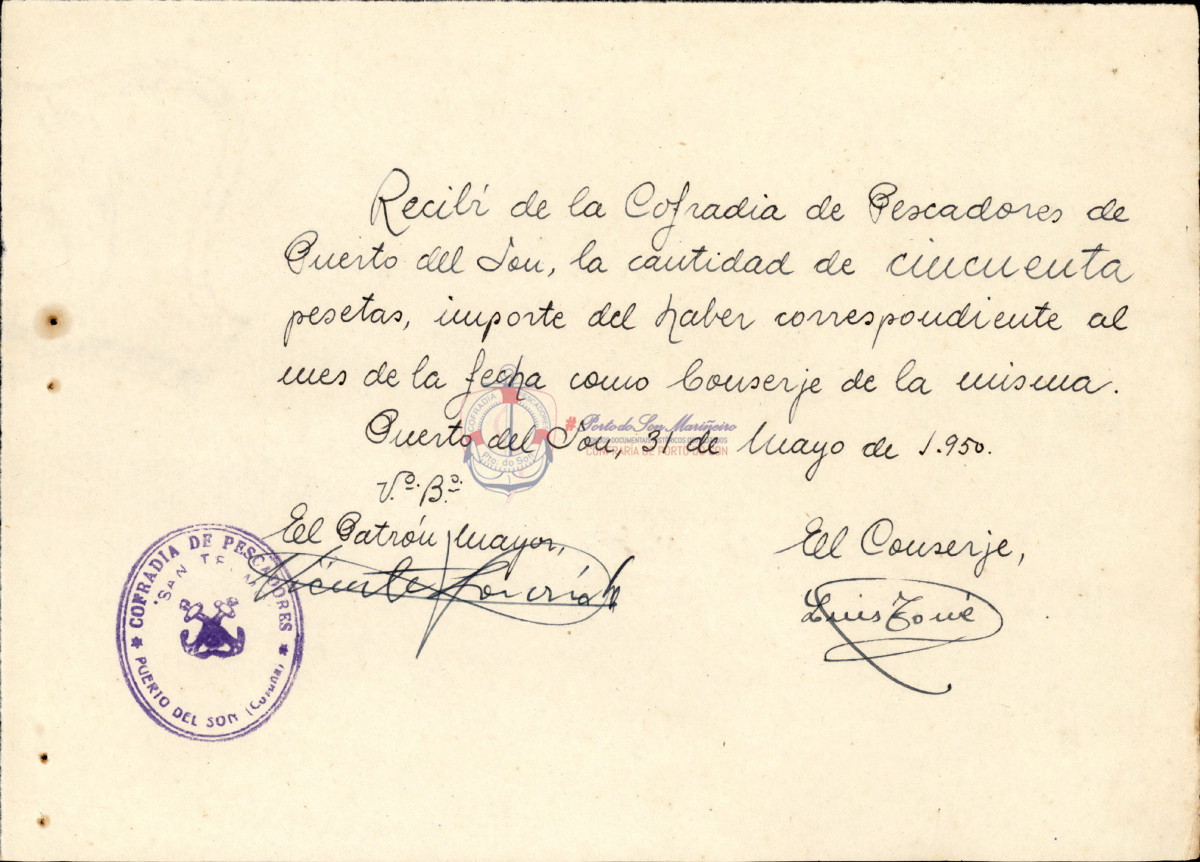 Recibí de la Cofradia de Pescadores de
Puerto del Son, la cantidad de cincuenta
pesetas, importe del haber correspondiente al
mes de la fecha como Conserje de la misma.
Puerto del Son, 31 de Mayo de 1.950.
Vº. Bº.
El Patrón Mayor,
Vicente
El Conserje,
Luis Tomé
COFRADIA DE PESCADORES
"SAN TELMO
PUERTO DEL SON (Coruña)
COFRADIA PESCADORES
Pto. do Son
#Porto do Son Mariñeiro
CONFRARÍA DE PORTO DO SON